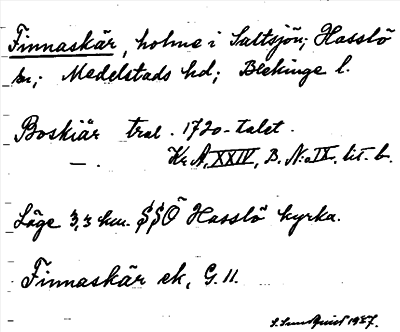 Finnaskär, holme i Saltsjön; Hasslö
sn; Medelstads hd; Blekinge l.
Boskiär trol. 1720-talet.
—. Kr. A, XXIV, B. N:o IX. lit. b.
Läge 3,3 km. SSO Hasslö kyrka.
Finnaskär ek, G. 11.
S. Sundquist 1937.